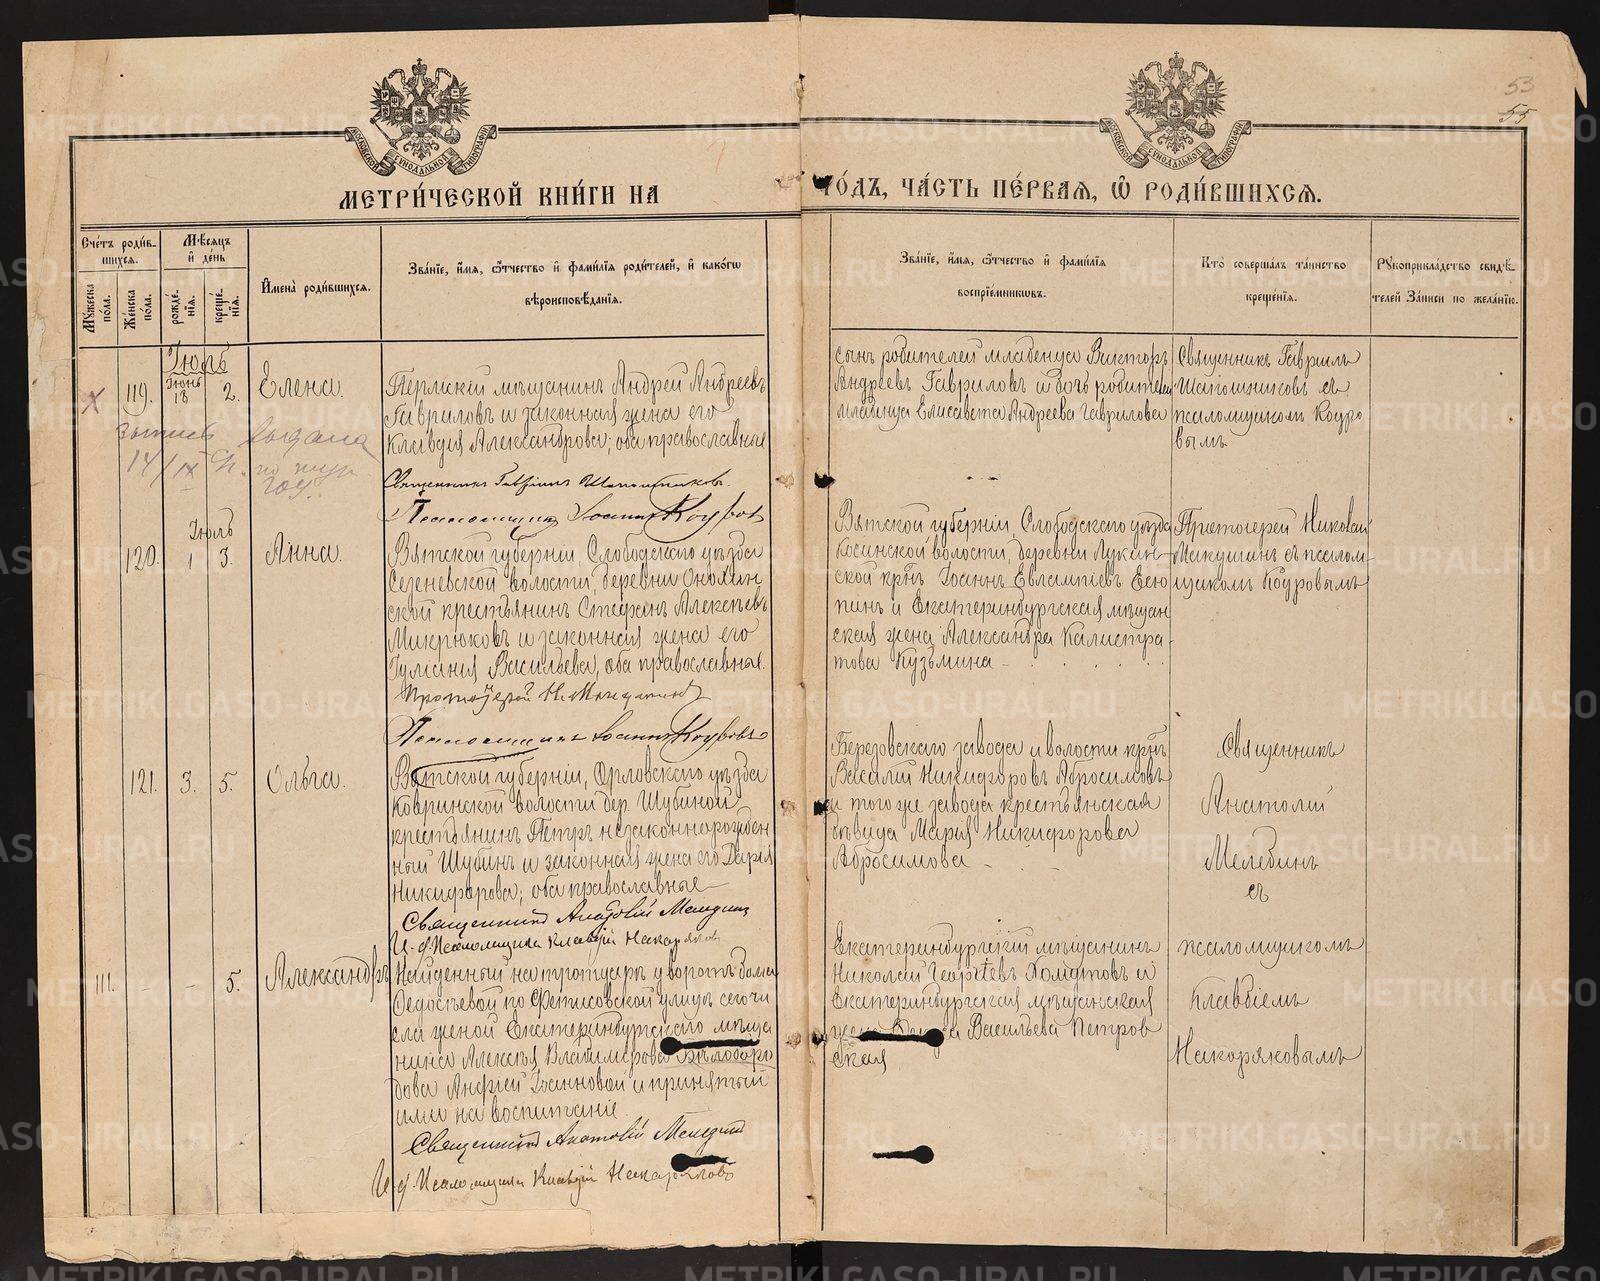 53
55
МЕТРИ́ЧЕСКОЙ КНИ́ГИ НА
ГО́ДЪ, ЧА́СТЬ ПЕ́РВАЯ, Ѡ РОДИ́ВШИХСЯ.
Сче́тъ роди́в-
шихся.
Му́жеска по́ла.
Же́нска по́ла.
Мѣ́сяцъ
и де́нь
рожде́-
нїя.
креще́-
нїя.
Имена̀ роди́вшихся.
Зва́нїе, и́мя, ѻ́тчество и фами́лїя роди́телей, и како́гѡ
вѣроисповѣ́данїя.
Зва́нїе, и́мя, ѻ́тчество и фами́лїя
воспрїе́мниковъ.
Кто̀ соверша́лъ та́инство
креще́нїя.
Рукоприкла́дство свидѣ́-
телей за́писи по жела́нїю.
Іюль
119.
Іюнь
18
2.
Елена.
Пермскій мѣщанинъ Андрей Андреевъ
Гавриловъ и законная жена его
Клавдія Александрова; оба православные
Священникъ Гавріилъ Шапошниковъ.
Псаломщикъ Іоаннъ Коуровъ
сынъ родителей младенца Викторъ
Андреевъ Гавриловъ и дочь родителей
младенца Елисавета Андреева Гаврилова
Священникъ Гавріилъ
Шапошниковъ съ
псаломщикомъ Коуро
вымъ
запись выдана
14/IX
Іюль
120.
1
3.
Анна.
Вятской губерніи, Слободскаго уѣзда
Сезеневской волости, деревни Онохин
ской крестьянинъ Стефанъ Алексѣевъ
Микрюковъ и законная жена его
Іуліанія Васильева, оба православные.
Протоіерей Н. Макушинъ
Псаломщикъ Іоаннъ Коуровъ
Вятской губерніи, Слободскаго уѣзда
Косинской волости, деревни Лукин-
ской крнъ Іоаннъ Евлампіевъ Есю
нинъ и Екатеринбургская мѣщан
ская жена Александра Калистра-
това Кузьмина
Протоіерей Николай
Макушинъ съ псалом-
щикомъ Коуровымъ
121.
3.
5.
Ольга.
Вятской губерніи, Орловскаго уѣзда
Ковринской волости дер. Шубиной
крестьянинъ Петръ незаконнорожден
ный Шубинъ и законная жена его Дарія
Никифорова; оба православные
Священникъ Анатолій Мелединъ
И. д. Псаломщика Клавдій Накоряковъ
Березовскаго завода и волости крнъ
Василій Никифоровъ Абросимовъ
и того же завода крестьянская
дѣвица Марія Никифорова
Абросимова
Священникъ
Анатолій
Мелединъ
съ
псаломщикомъ
Клавдіемъ
Накоряковымъ
111.
-
-
5.
Александръ
Найденный на тротуарѣ у воротъ дома
Ѳедосѣевой по Фетисовской улицѣ сего чи
сла женой Екатеринбургскаго мѣща
нина Алексѣя Владимірова Бѣлоборо
дова Анфіей Іоанновой и принятый
ими на воспитаніе.
Священникъ Анатолій Мелединъ
И. д. Псаломщика Клавдій Накоряковъ
Екатеринбургскій мѣщанинъ
Николай Георгіевъ Хомутовъ и
Екатеринбургская мѣщанская
жена Васильева Петров
ская